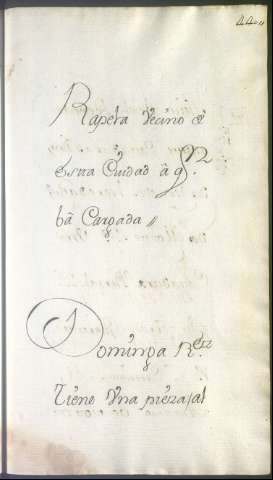 44
Rapela Vecino de
estta Ciudad â q.n
bâ Cargada //
Dominga R.
Tiene Una pieza, al